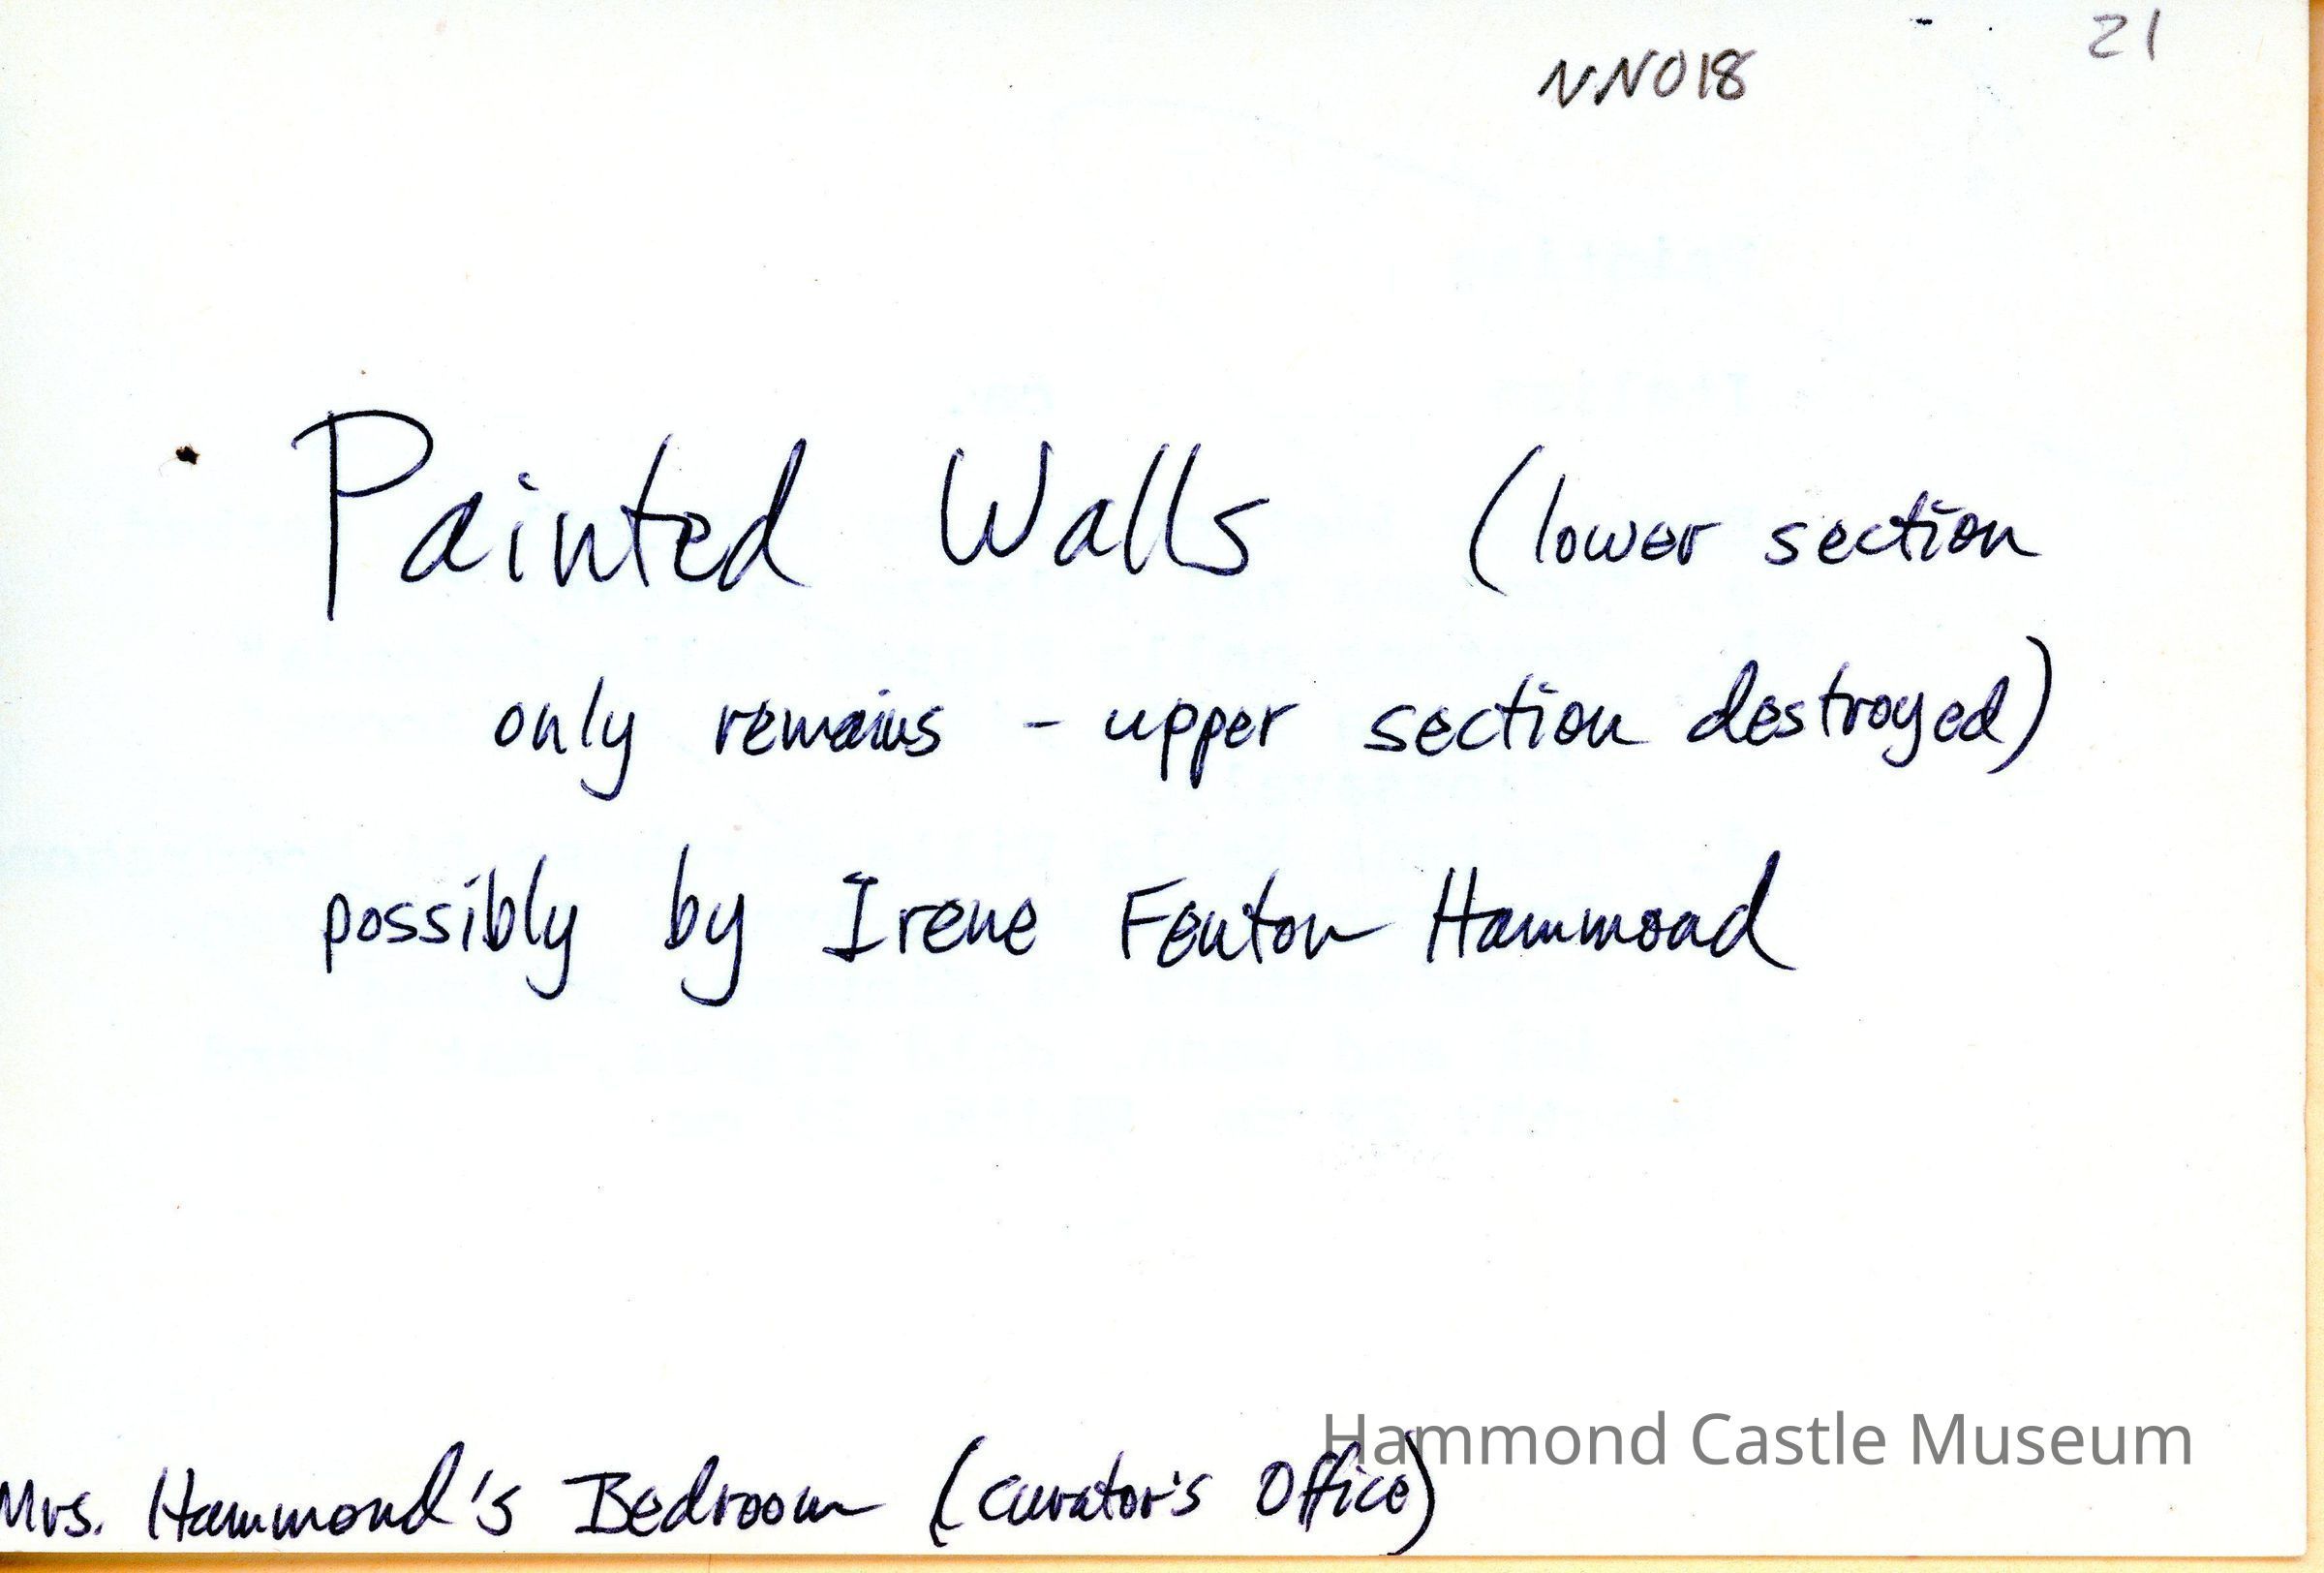 NN018 21
Painted Walls (lower section
only remains - upper section destroyed)
possibly by Irene Fenton Hammond
Hammond Castle Museum
Mrs. Hammond's Bedroom (Curator's Office)